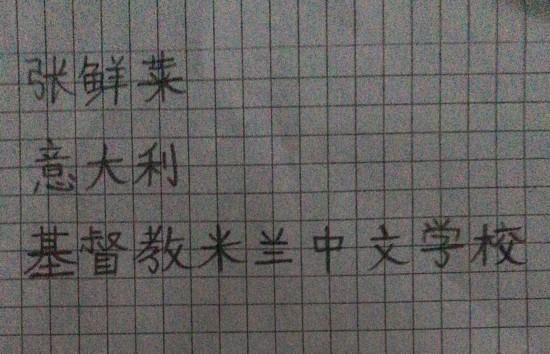 张鲜菜
意大利
基督教米兰中文学校